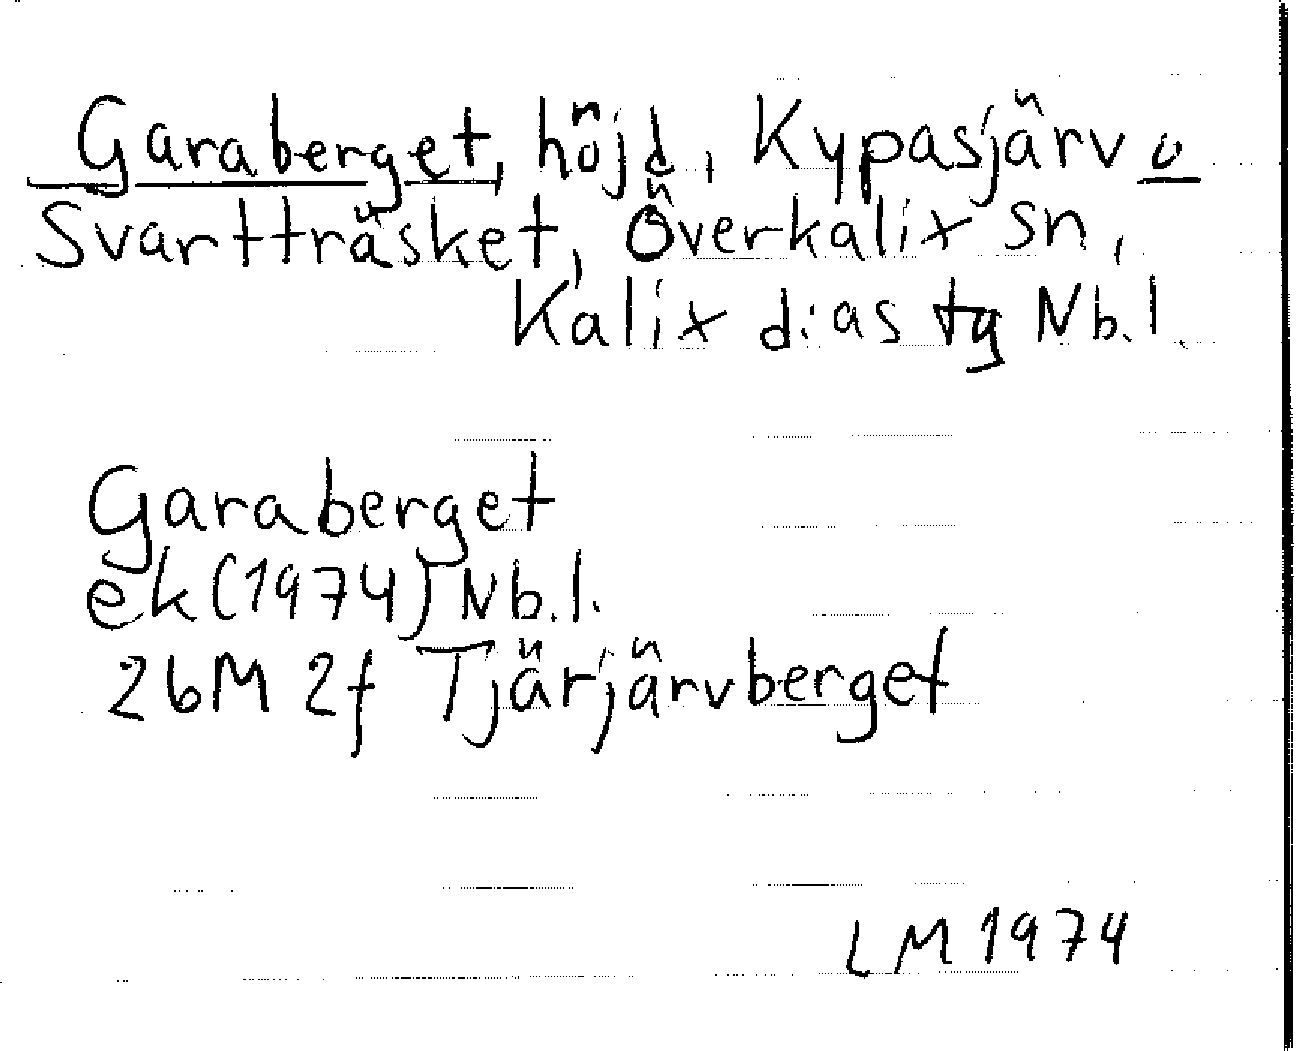 Garaberget, höjd, Kypasjärv o
Svartträsket, Överkalix sn,
Kalix dias tg Nb.l.
Garaberget
ek(1974) Nb.l.
26M 2f Tjärjärvberget
LM 1974